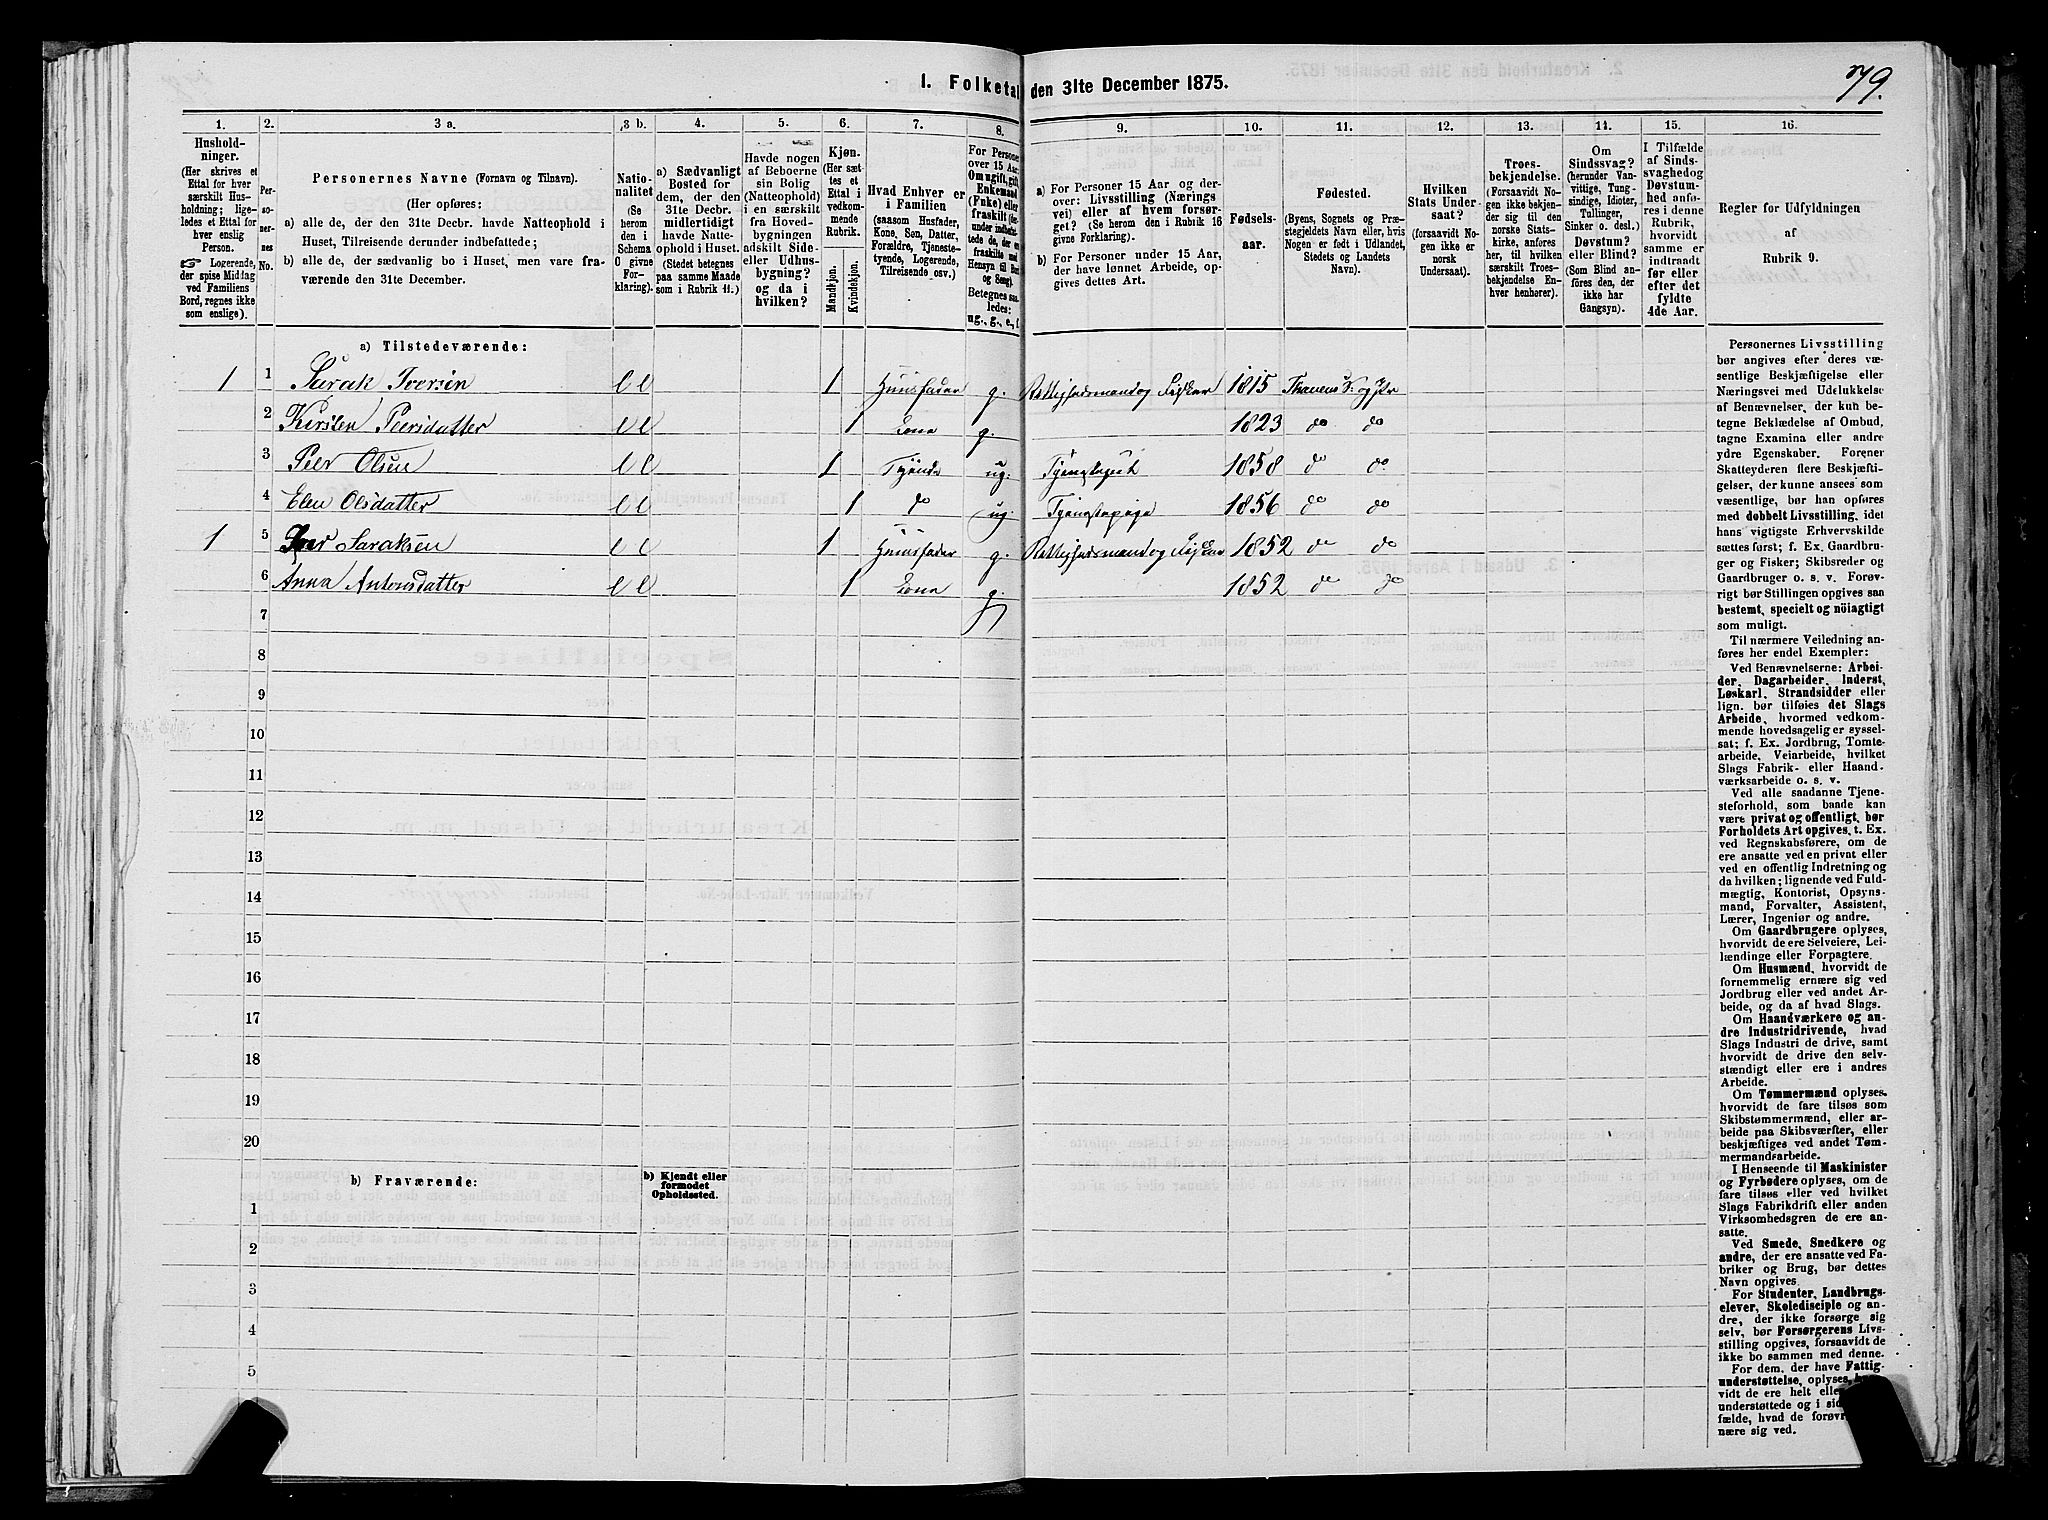 1. Folketal den 31te December 1875.
79.
1. 2. 3 a. 3 b. 4. 5. 6. 7. 8. 9. 10. 11. 12. 13. 14. 15. 16.
Hushold-
ninger.
(Her skrives et
Ettal for hver
særskilt Hus-
holdning; lige-
ledes et Ettal for
hver enslig
Person.
☞ Logerende,
der spise Middag
ved Familiens
Bord, regnes ikke
som enslige).
Per-
so-
ner-
nes
No.
Personernes Navne (Fornavn og Tilnavn).
(Her opføres:
a) alle de, der den 31te Decbr. havde Natteophold i
Huset, Tilreisende derunder indbefattede;
b) alle de, der sædvanlig bo i Huset, men vare fra-
værende den 31te December.
Natio-
nalitet
(Se
herom
den i
Schema
O givne
For-
klaring).
a) Sædvanligt
Bosted for
dem, der den
31te Decbr.
midlertidigt
havde Natte-
ophold i Huset.
(Stedet betegnes
paa samme Maade
som i Rubrik 11.)
Havde nogen
af Beboerne
sin Bolig
(Natteophold)
i en særskilt
fra Hoved-
bygningen
adskilt Side-
eller Udhus-
bygning?
og da i
hvilken?
Kjøn.
(Her sæt-
tes et
Ettal i
vedkom-
mende
Rubrik.
Mandkjøn.
Kvindekjøn.
Hvad Enhver er
i Familien
(saasom Husfader,
Kone, Søn, Datter,
Forældre, Tjeneste-
tyende, Logerende,
Tilreisende osv.)
For Personer
over 15 Aar:
Om ugift, gift,
Enkemand
(Enke) eller
fraskilt
Betegnes saa-
ledes:
ug., g., e., f.
a) For Personer 15 Aar og der-
over: Livsstilling (Nærings-
vei) eller af hvem forsør-
get? (Se herom den i Rubrik 16
givne Forklaring).
b) For Personer under 15 Aar,
der have lønnet Arbeide, op-
gives dettes Art.
Fødsels-
aar.
Fødested.
(Byens, Sognets og Præ-
stegjeldets Navn eller, hvis
Nogen er født i Udlandet,
Stedets og Landets
Navn).
Hvilken
Stats Under-
saat?
(forsaavidt No-
gen ikke er
norsk
Undersaat).
Troes-
bekjendelse.
(Forsaavidt No-
gen ikke bekjen-
der sig til den
norske Stats-
kirke, anføres
her, til hvilken
særskilt Troes-
bekjendelse En-
hver henhører).
Om
Sindssvag?
(herunder Van-
vittige, Tung-
sindige, Idioter,
Tullinger,
Sinker o. desl.)
Døvstum?
eller Blind?
(Som Blind an-
føres den, der
ikke har
Gangsyn).
I Tilfælde
af Sinds-
svaghed og
Døvstum-
hed anfø-
res i denne
Rubrik,
hvorvidt
samme er
indtraadt
før eller
efter det
fyldte
4de Aar.
Regler for Udfyldningen
af
Rubrik 9.
a) Tilstedeværende:
1 1 Sarak Iversen l l 1 Huusfader g. Rettighedsmand og Fisker 1815 Thanens S. og Pr
2 Kirsten Peersdatter l l 1 Kone g. 1823 do do
3 Peer Olsen l l 1 Tyende ug: 1858 do do
4 Elen Olsdatter l l 1 do ug. 1856 do do
1 5 Iver Saraksen l l 1 Huusfader g. Rettighedsmand og Fisker 1852 do do
6 Anna Antonsdatter l l 1 Kone g. 1852 do do
7
8
9
10
11
12
13
14
15
16
17
18
19
20
b) Fraværende:
b) Kjendt eller
formodet
Opholdssted.
1
2
3
4
5
Personernes Livsstilling
bør angives efter deres væ-
sentlige Beskjæftigelse eller
Næringsvei med Udelukkelse
af Benævnelser, der kun be-
tegne Beklædelse af Ombud,
tagne Examina eller andre
ydre Egenskaber. Forener
Skatteyderen flere Beskjæfti-
gelser, der kunne ansees som
væsentlige, bør han opføres
med dobbelt Livsstilling, idet
hans vigtigste Erhvervskilde
sættes først; f. Ex. Gaardbru-
ger og Fisker; Skibsreder og
Gaardbruger o. s. v. Forøv-
rigt bør Stillingen opgives saa
bestemt, specielt og nöiagtigt
som muligt.
Til nærmere Veiledning an-
føres her endel Exempler:
Ved Benævnelserne: Arbei-
der, Dagarbeider, Inderst,
Løskarl, Strandsidder eller
lign. bør tilføies det Slags
Arbeide, hvormed vedkom-
mende hovedsagelig er syssel-
sat; f. Ex. Jordbrug, Tomte-
arbeide, Veiarbeide, hvilket
Slags Fabrik- eller Haand-
værksarbeide o. s. v.
Ved alle saadanne Tjene-
steforhold, som baade kan
være privat og offentligt, bør
Forholdets Art opgives, t. Ex.
ved Regnskabsførere, om de
ere ansatte ved en privat eller
ved en offentlig Indretning og
da hvilken; lignende ved Fuld-
mægtig, Kontorist, Opsyns-
mand, Forvalter, Assistent,
Lærer, Ingeniør og andre.
Om Gaardbrugere oplyses,
hvorvidt de ere Selveiere, Lei-
lændinge eller Forpagtere.
Om Husmænd, hvorvidt de
fornemmelig ernære sig ved
Jordbrug eller ved andet Ar-
beide, og da af hvad Slags.
Om Haandværkere og an-
dre Industridrivende, hvad
Slags Industri de drive, samt
hvorvidt de drive den selv-
stændigt eller ere i andres
Arbeide.
Om Tømmermænd oplyses,
hvorvidt de fare tilsøs som
Skibstømmermænd, eller ar-
beide paa Skibsværfter, eller
beskjæftiges ved andet Tøm-
mermandsarbeide.
I Henseende til Maskinister
og Fyrbødere oplyses, om de
fare tilsøs eller ved hvilket
Slags Fabrikdrift eller anden
Virksomhedsgren de ere an-
satte.
Ved Smede, Snedkere og
andre, der ere ansatte ved Fa-
briker og Brug, bør dettes
Navn opgives.
For Studenter, Landbrugs-
elever, Skoledisciple og an-
dre, der ikke forsørge sig
selv, bør Forsørgerens Livs-
stilling opgives, forsaavidt de
ikke bo sammen med denne.
For dem, der have Fattig-
understøttelse, oplyses,
vidt de ere helt eller
understøttede og i
fælde, hvad de
nære sig ved.